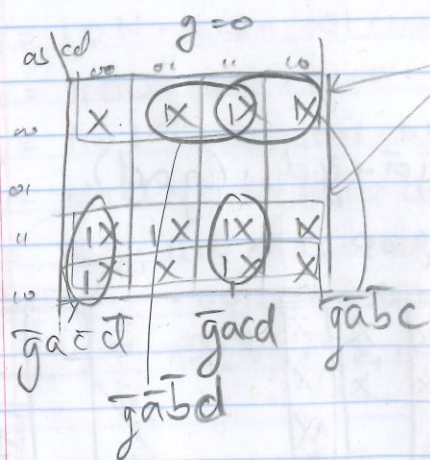 g=0
ab\cd
00 01 11 10
00 X 1X 1X 1X
01
11 1X 1X 1X 1X
10 1X X 1X X
g̅ac̅d̅ g̅acd g̅a̅b̅c
g̅a̅b̅d